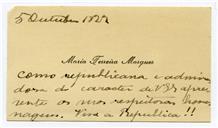 5 Outubro 1921
Maria Ferreira Marques
como republicana e admira
dora do caracter de V. Exª apre
senta as suas respeitosas home
nagens. Viva a Republica!!